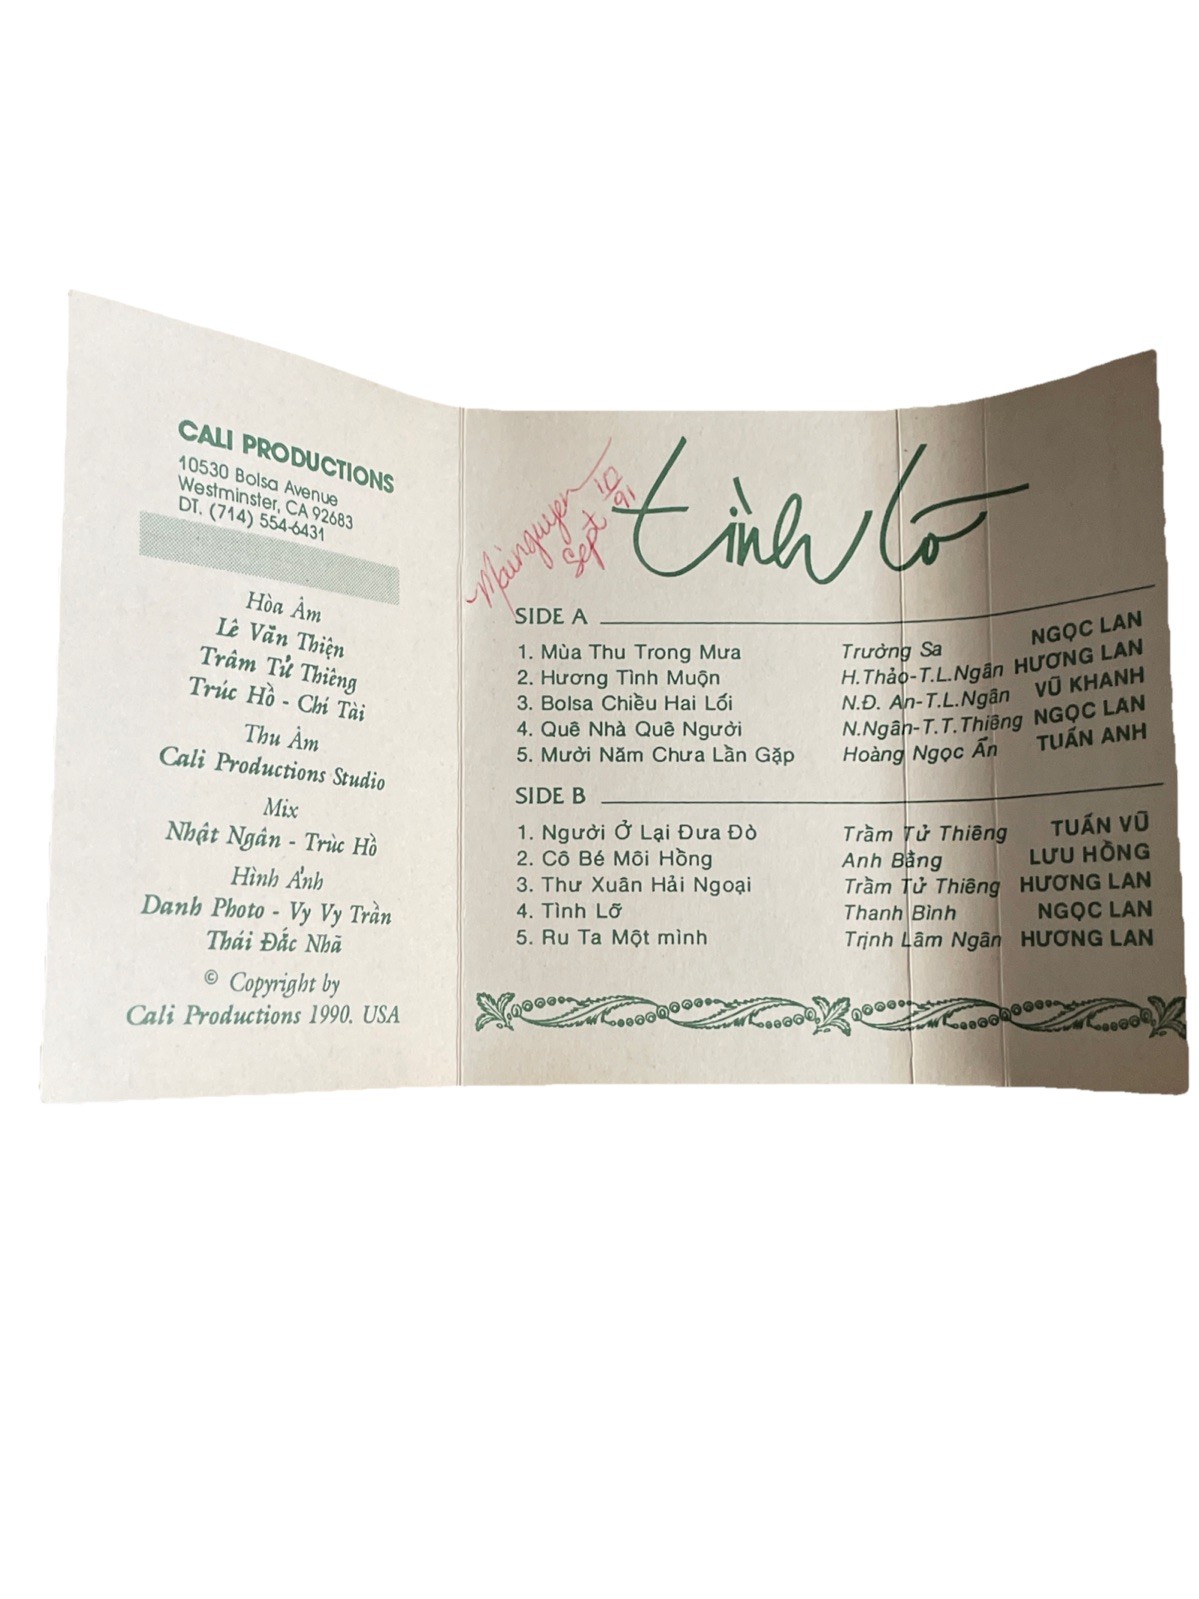 CALI PRODUCTIONS
10530 Bolsa Avenue
Westminster, CA 92683
DT. (714) 554-6431
Hòa Âm
Lê Văn Thiện
Trâm Tử Thiêng
Trúc Hồ - Chí Tài
Thu Âm
Cali Productions Studio
Mix
Nhật Ngân - Trúc Hồ
Hình Ảnh
Danh Photo - Vy Vy Trần
Thái Đắc Nhã
© Copyright by
Cali Productions 1990. USA
Mainguyen
Sept 10/91
tình lỡ
SIDE A
1. Mùa Thu Trong Mưa Trường Sa NGỌC LAN
2. Hương Tình Muộn H.Thảo-T.L.Ngân HƯƠNG LAN
3. Bolsa Chiều Hai Lối N.Đ. An-T.L.Ngân VŨ KHANH
4. Quê Nhà Quê Người N.Ngân-T.T.Thiêng NGỌC LAN
5. Mười Năm Chưa Lần Gặp Hoàng Ngọc Ẩn TUẤN ANH
SIDE B
1. Người Ở Lại Đưa Đò Trầm Tử Thiêng TUẤN VŨ
2. Cô Bé Môi Hồng Anh Bằng LƯU HỒNG
3. Thư Xuân Hải Ngoại Trầm Tử Thiêng HƯƠNG LAN
4. Tình Lỡ Thanh Bình NGỌC LAN
5. Ru Ta Một mình Trịnh Lâm Ngân HƯƠNG LAN